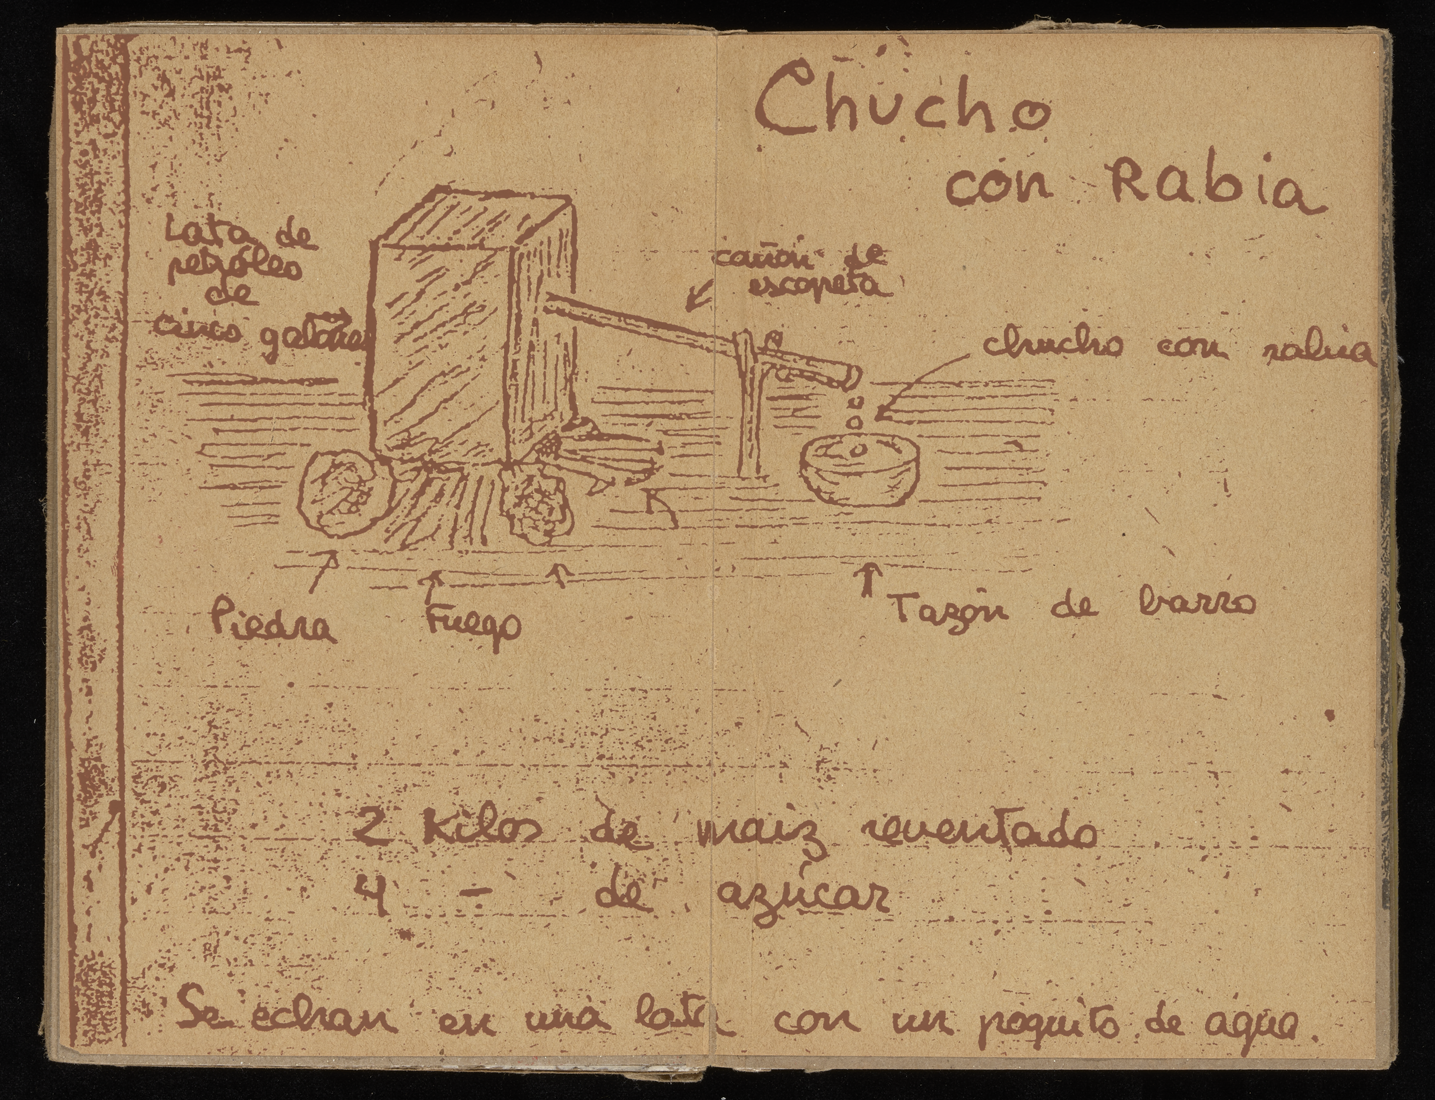 Chucho
con Rabia
Lata de
petróleo
de
cinco galones
cañón de
escopeta
chucho con rabia
Piedra
Fuego
Tazón de barro
2 Kilos de maiz reventado
4 - de azúcar
Se echan en una lata con un poquito de agua.